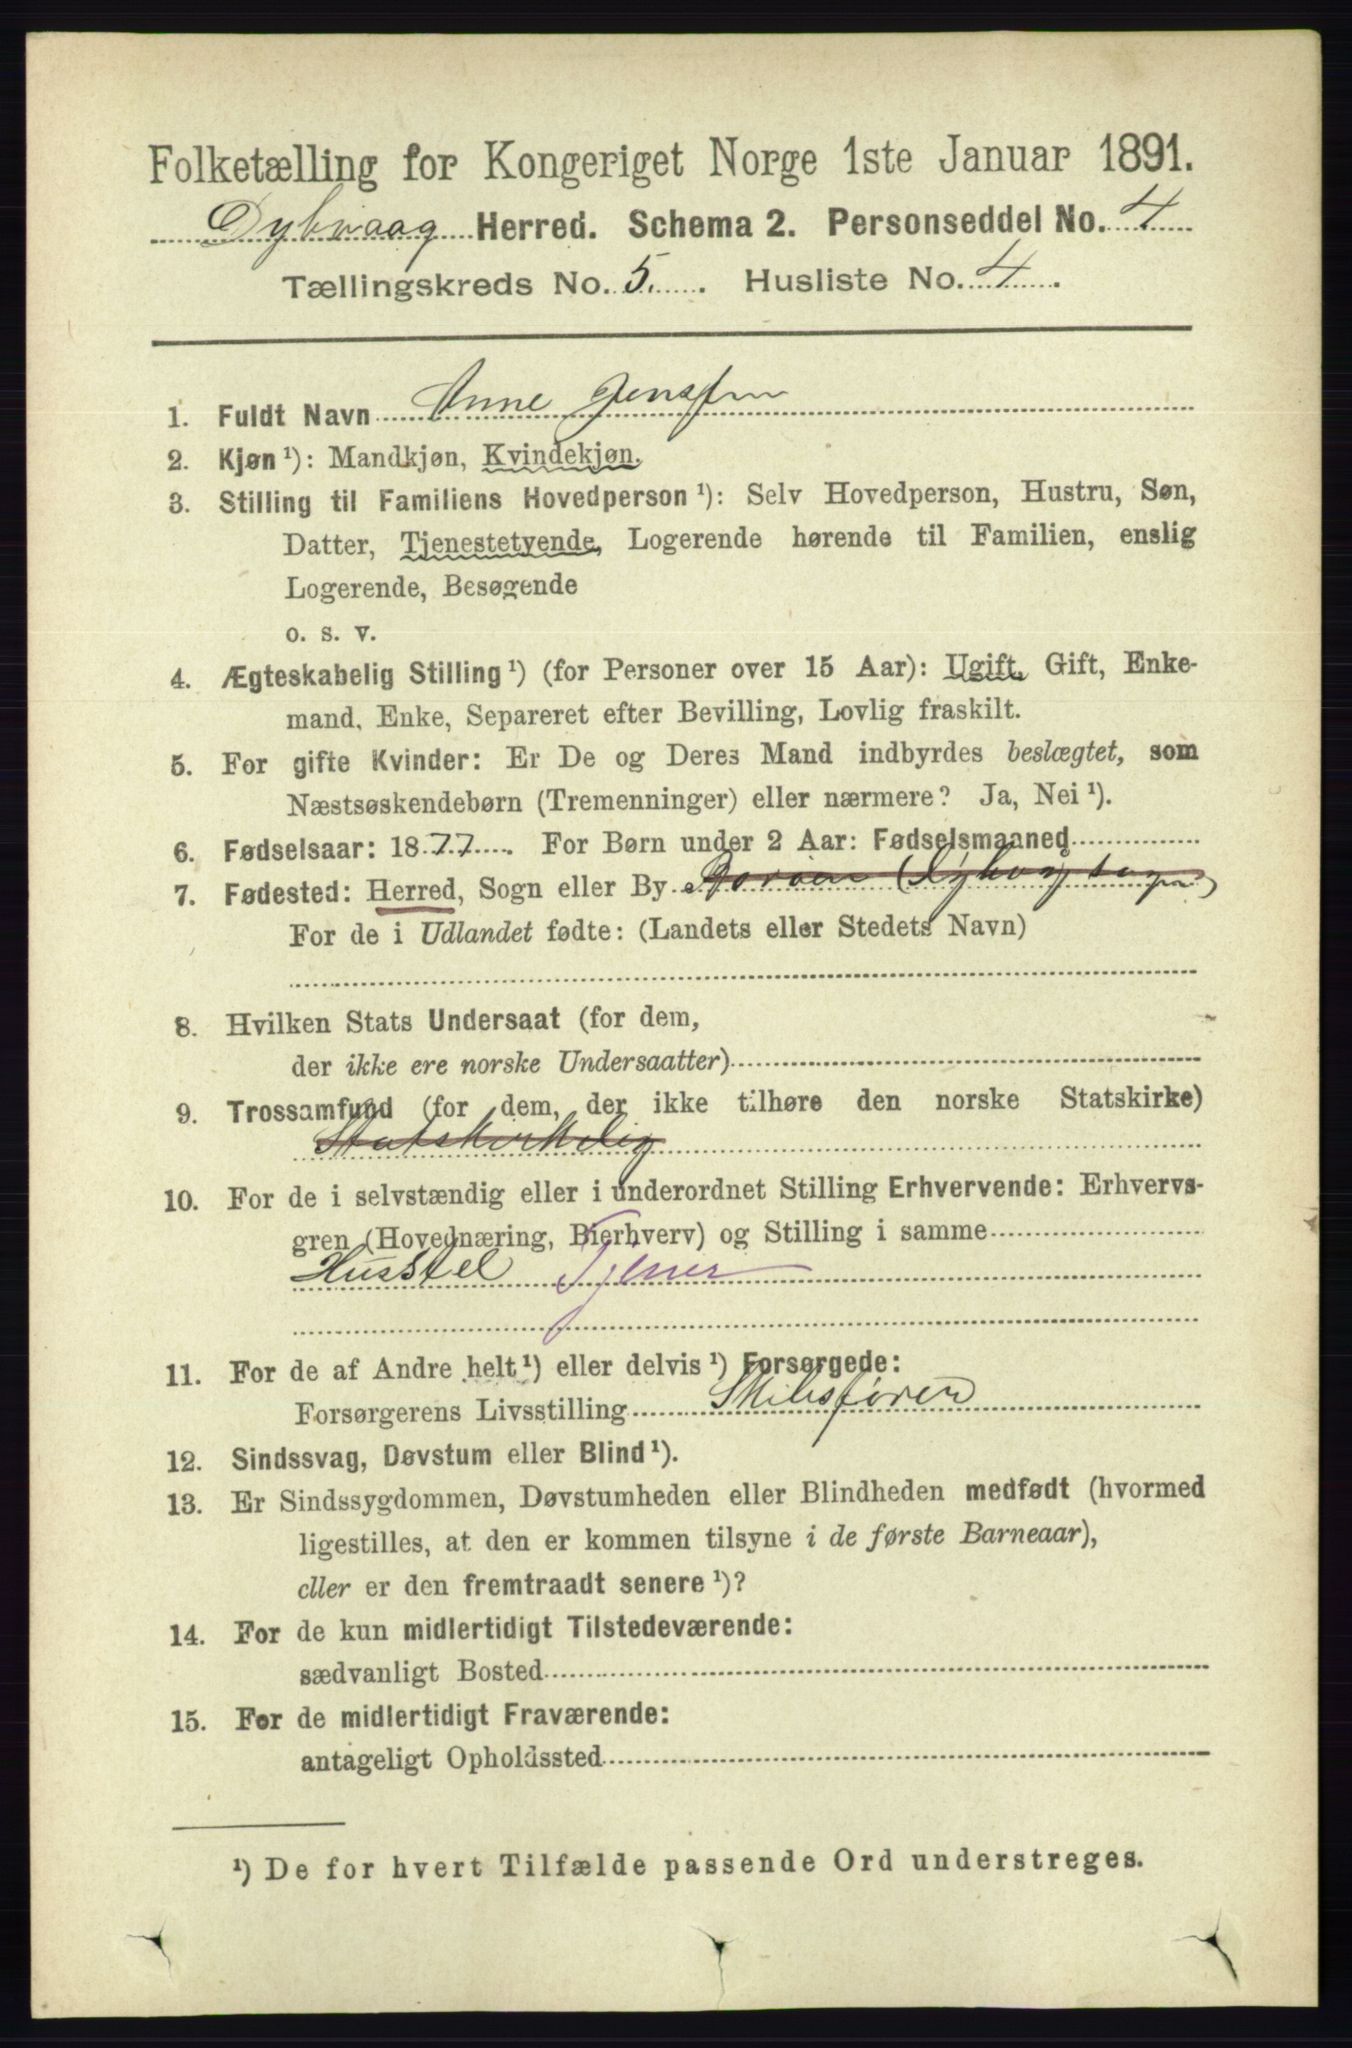 Folketælling for Kongeriget Norge 1ste Januar 1891.
Dybvaag Herred. Schema 2. Personseddel No. 4
Tællingskreds No. 5. Husliste No. 4.
1. Fuldt Navn Anne Jensen
2. Kjøn ¹): Mandkjøn, Kvindekjøn.
3. Stilling til Familiens Hovedperson ¹): Selv Hovedperson, Hustru, Søn,
Datter, Tjenestetyende, Logerende hørende til Familien, enslig
Logerende, Besøgende
o. s. v.
4. Ægteskabelig Stilling ¹) (for Personer over 15 Aar): Ugift, Gift, Enke-
mand, Enke, Separeret efter Bevilling, Lovlig fraskilt.
5. For gifte Kvinder: Er De og Deres Mand indbyrdes beslægtet, som
Næstsøskendebørn (Tremenninger) eller nærmere? Ja, Nei ¹).
6. Fødselsaar: 1877. For Børn under 2 Aar: Fødselsmaaned
7. Fødested: Herred, Sogn eller By Borøen (Dybvaag sogn)
For de i Udlandet fødte: (Landets eller Stedets Navn)
8. Hvilken Stats Undersaat (for dem,
der ikke ere norske Undersaatter)
9. Trossamfund (for dem, der ikke tilhøre den norske Statskirke)
Statskirkelig
10. For de i selvstændig eller i underordnet Stilling Erhvervende: Erhvervs-
gren (Hovednæring, Bierhverv) og Stilling i samme
Husstel Tjener
11. For de af Andre helt ¹) eller delvis ¹) Forsørgede:
Forsørgerens Livsstilling Skibsfører
12. Sindssvag, Døvstum eller Blind ¹).
13. Er Sindssygdommen, Døvstumheden eller Blindheden medfødt (hvormed
ligestilles, at den er kommen tilsyne i de første Barneaar),
eller er den fremtraadt senere ¹)?
14. For de kun midlertidigt Tilstedeværende:
sædvanligt Bosted
15. For de midlertidigt Fraværende:
antageligt Opholdssted
¹) De for hvert Tilfælde passende Ord understreges.